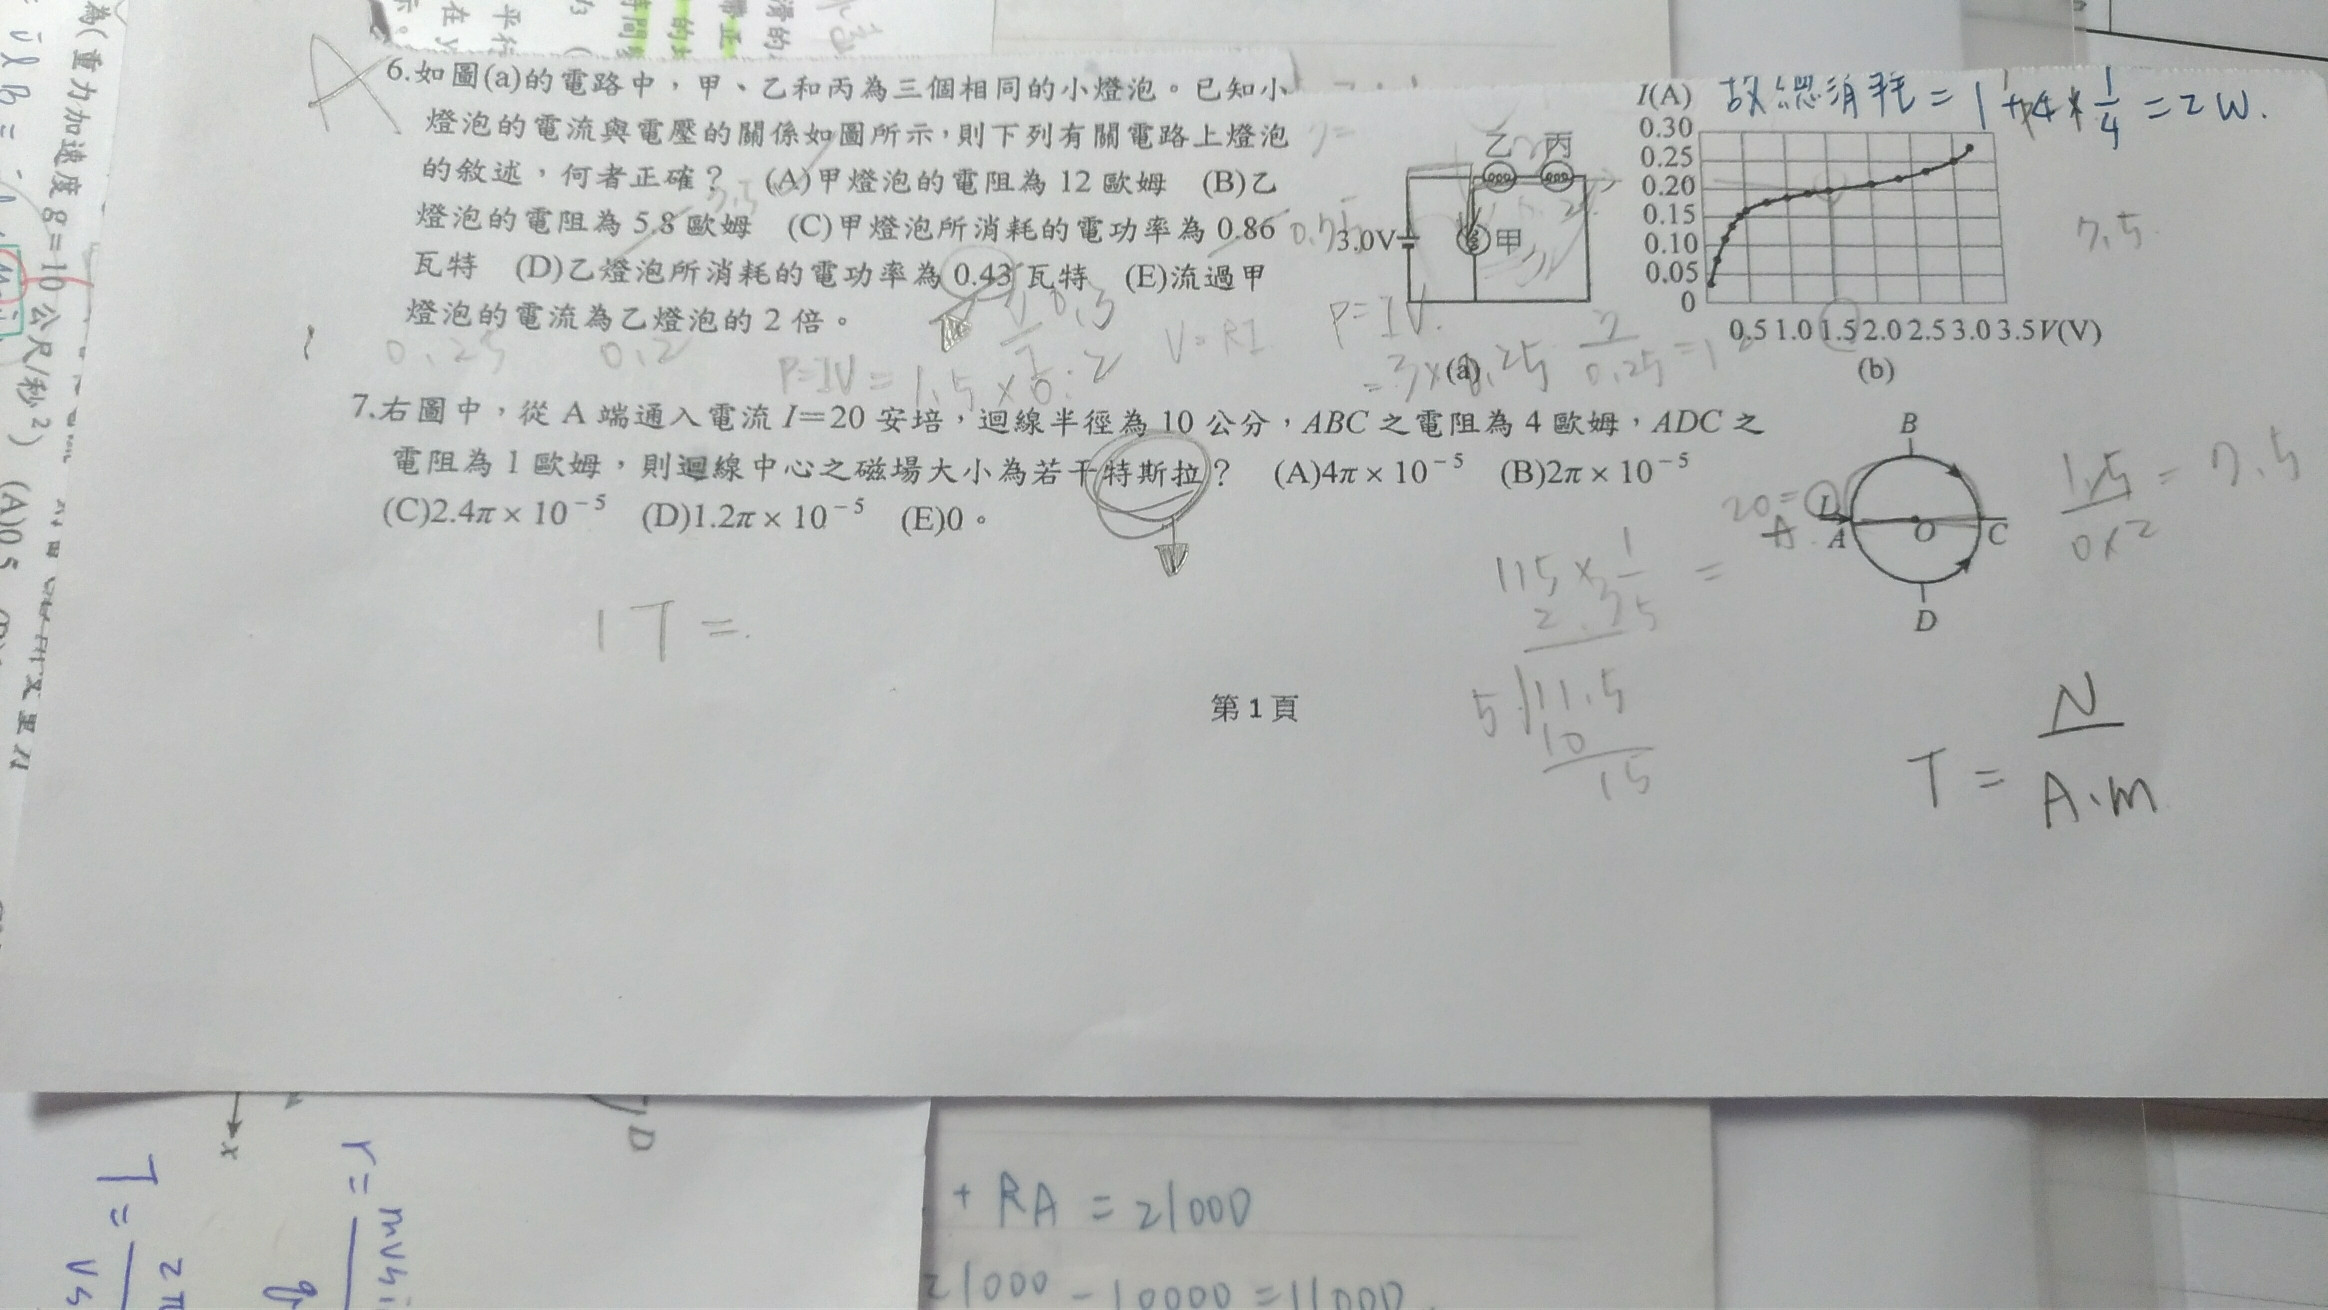 6.如圖(a)的電路中，甲、乙和丙為三個相同的小燈泡。已知小
燈泡的電流與電壓的關係如圖所示，則下列有關電路上燈泡
的敘述，何者正確？ (A)甲燈泡的電阻為 12 歐姆 (B)乙
燈泡的電阻為 5.8 歐姆 (C)甲燈泡所消耗的電功率為 0.86
瓦特 (D)乙燈泡所消耗的電功率為 0.43 瓦特 (E)流過甲
燈泡的電流為乙燈泡的 2 倍。
0.25 0.2
P=IV=1.5×0.2
V=RI
P=IV.
=3×0.25
乙 丙
3.0V 甲
(a)
故總消耗=1+4×1/4=2W.
I(A)
0.30
0.25
0.20
0.15
0.10
0.05
0
0.5 1.0 1.5 2.0 2.5 3.0 3.5 V(V)
(b)
7.5
7.右圖中，從 A 端通入電流 I=20 安培，迴線半徑為 10 公分，ABC 之電阻為 4 歐姆，ADC 之
電阻為 1 歐姆，則迴線中心之磁場大小為若干特斯拉？ (A)4π×10⁻⁵ (B)2π×10⁻⁵
(C)2.4π×10⁻⁵ (D)1.2π×10⁻⁵ (E)0。
B
20=I
A
A O C
D
1.5/0.2=7.5
1T=
5)11.5
10
15
T=N/A·m
第 1 頁
為(重力加速度 g=10 公尺/秒²) (A)0.5
D
x
+ RA = 21000
21000 - 10000 = 11000.